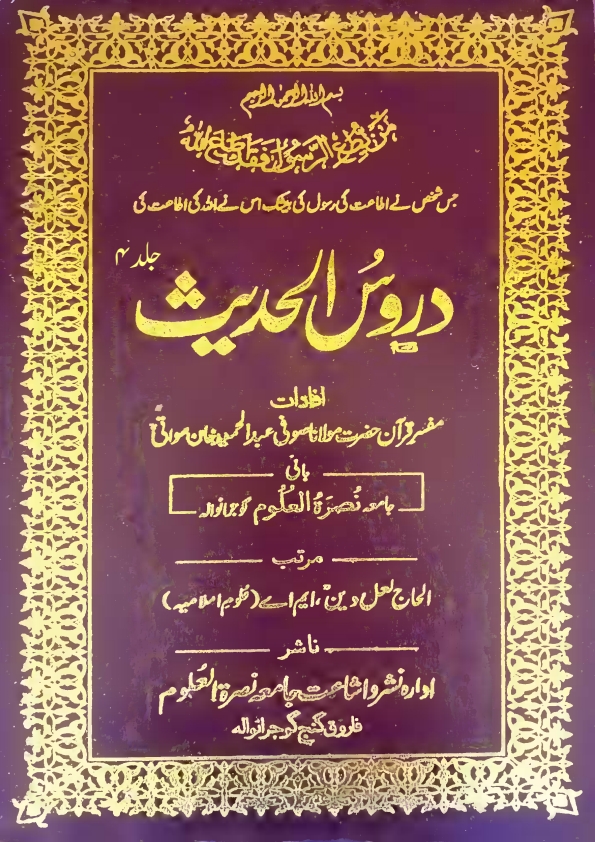 بسم اللہ الرحمن الرحیم
مَنْ یُّطِعِ الرَّسُوْلَ فَقَدْ اَطَاعَ اللّٰہَ
جس شخص نے اطاعت کی رسول کی بیشک اس نے اللہ کی اطاعت کی
جلد ۴
دروسُ الحدیث
افادات
مفسر قرآن حضرت مولانا صوفی عبدالحمید خان سواتیؒ
بانی
جامعہ نُصرَۃُ العُلُوم گوجرانوالہ
مرتب
الحاج لعل دینؒ، ایم اے (علومِ اسلامیہ)
ناشر
ادارہ نشر و اشاعت جامعہ نصرۃ العُلوم
فاروق گنج گوجرانوالہ